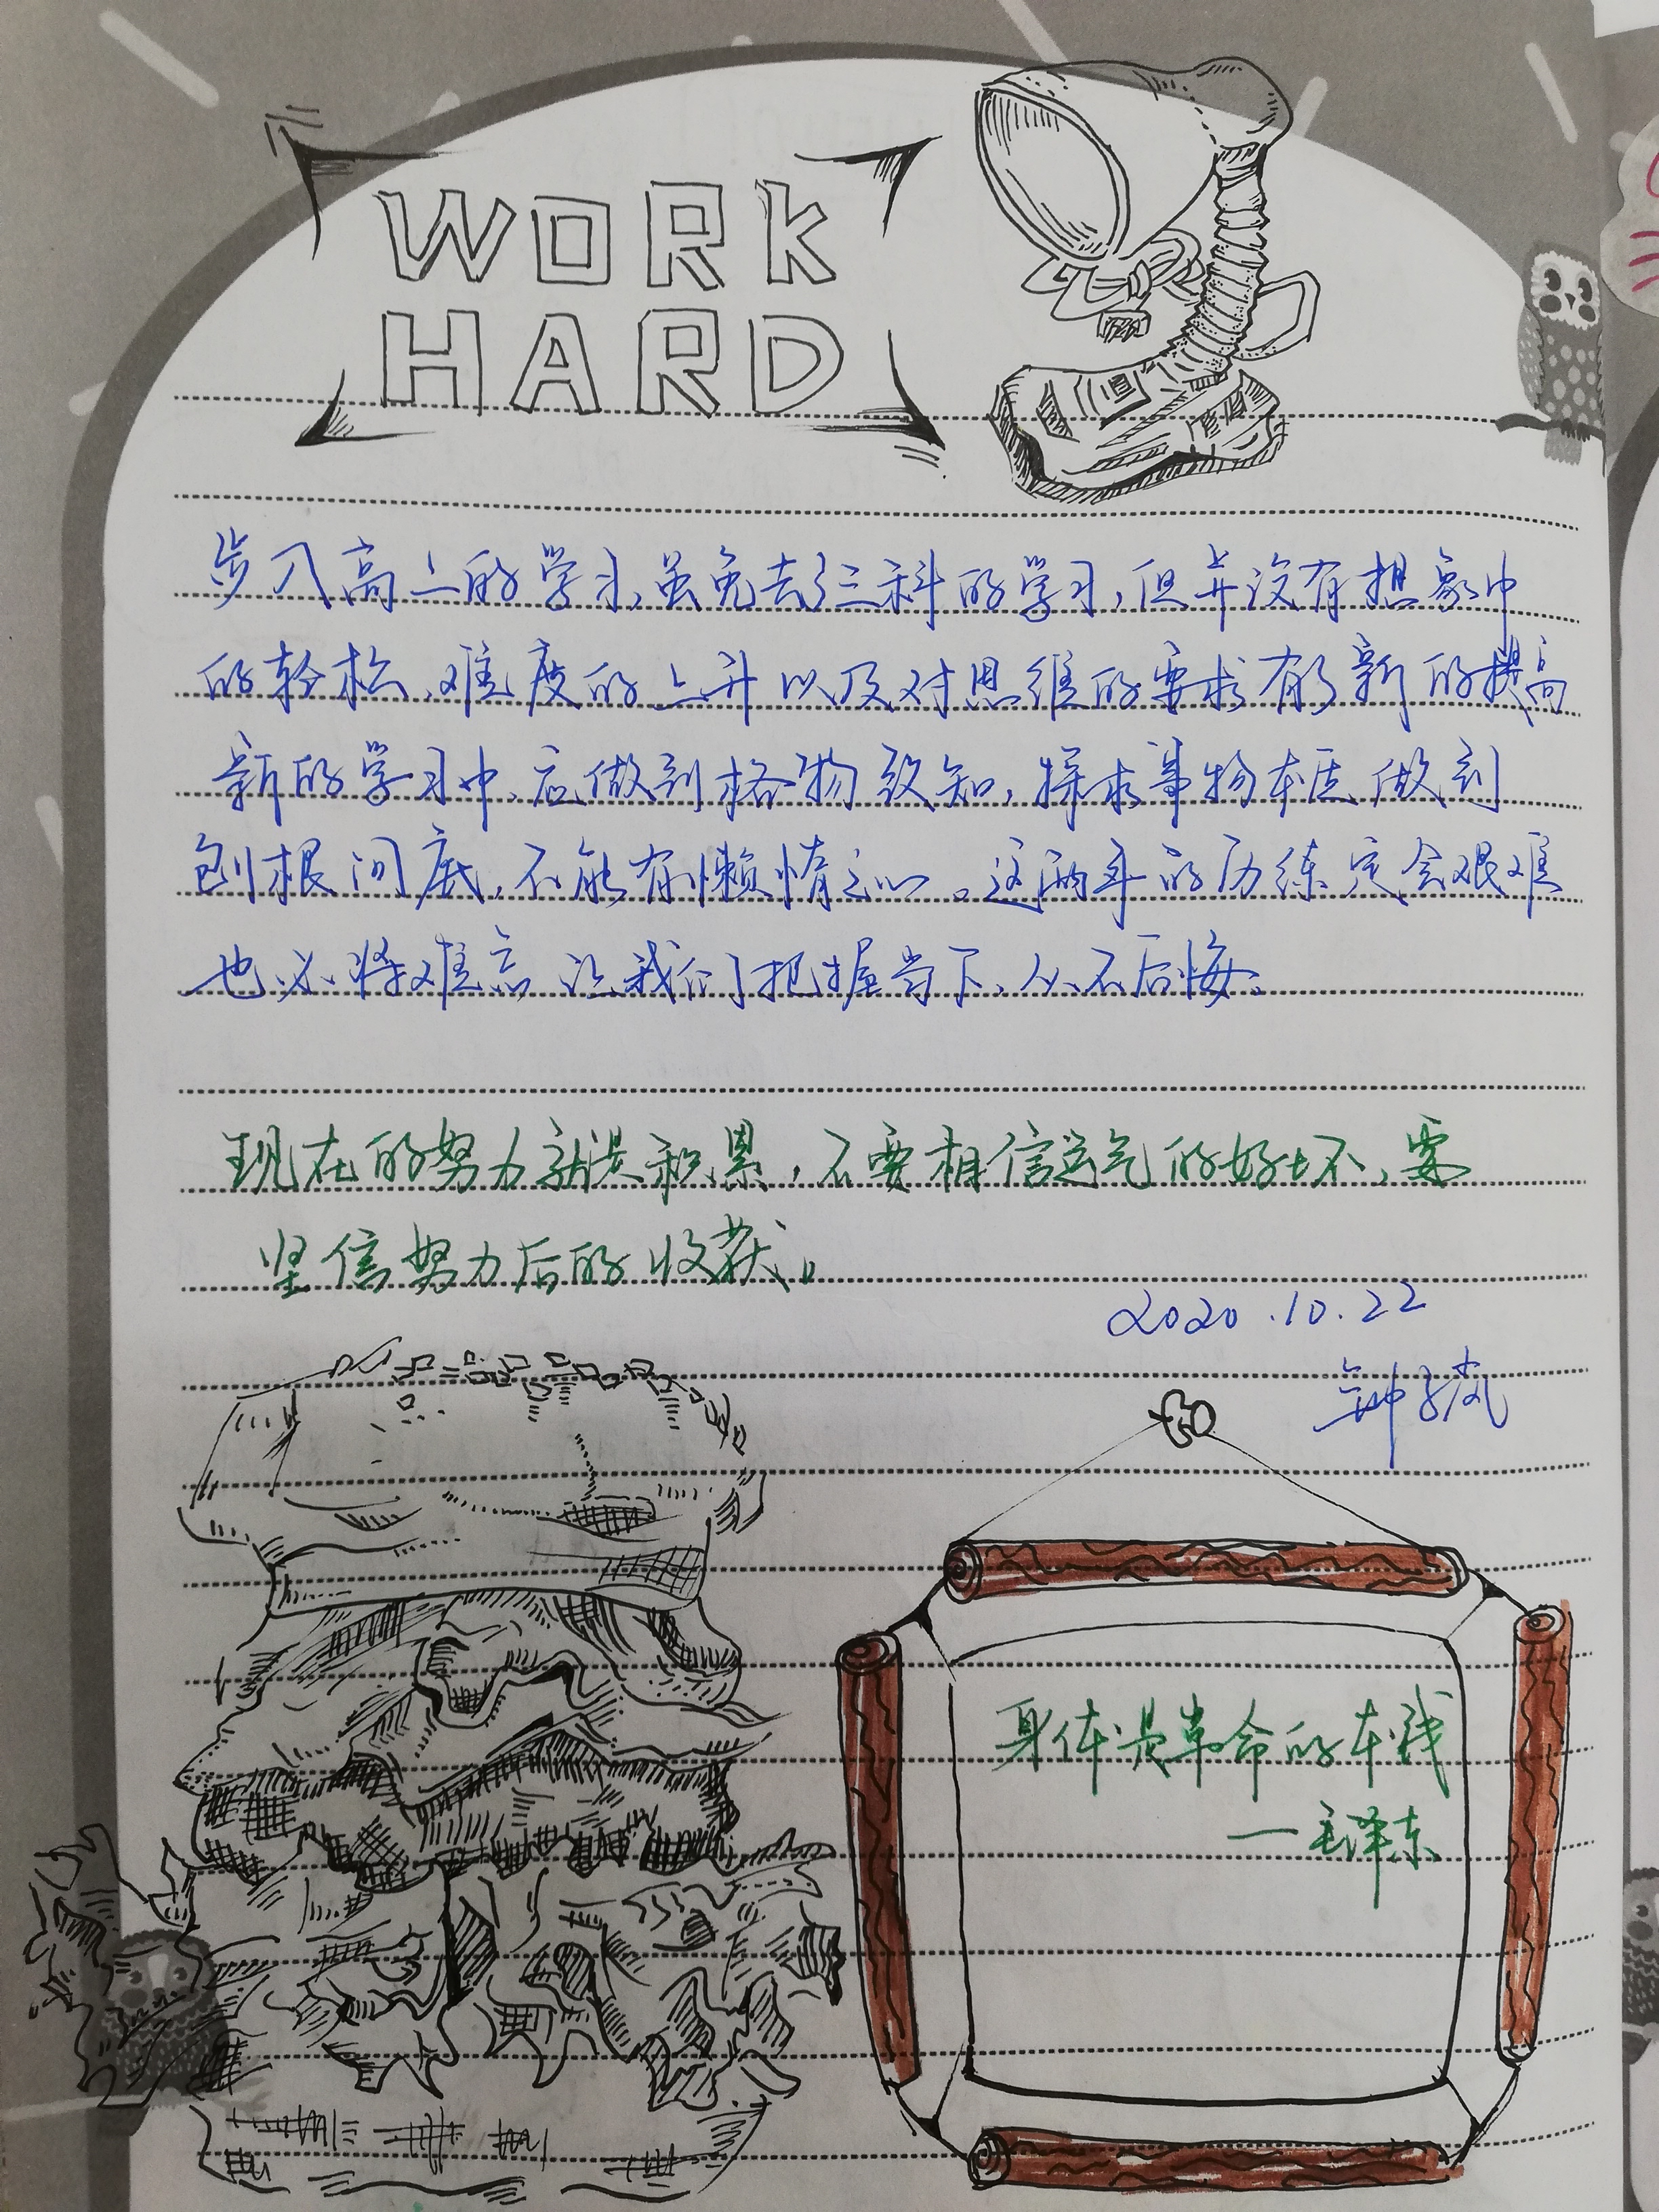 WORK
HARD
步入高二的学习,虽免去了三科的学习,但并没有想象中
的轻松,难度的上升以及对思维的要求有了新的提高
新的学习中,应做到格物致知,探求事物本质做到
刨根问底,不能有懒惰之心。这两年的历练定会艰难
也必将难忘 让我们把握当下,从不后悔。
现在的努力就是积累,不要相信运气的好坏,要
坚信努力后的收获。
2020.10.22
钟子岚
身体是革命的本钱
—毛泽东